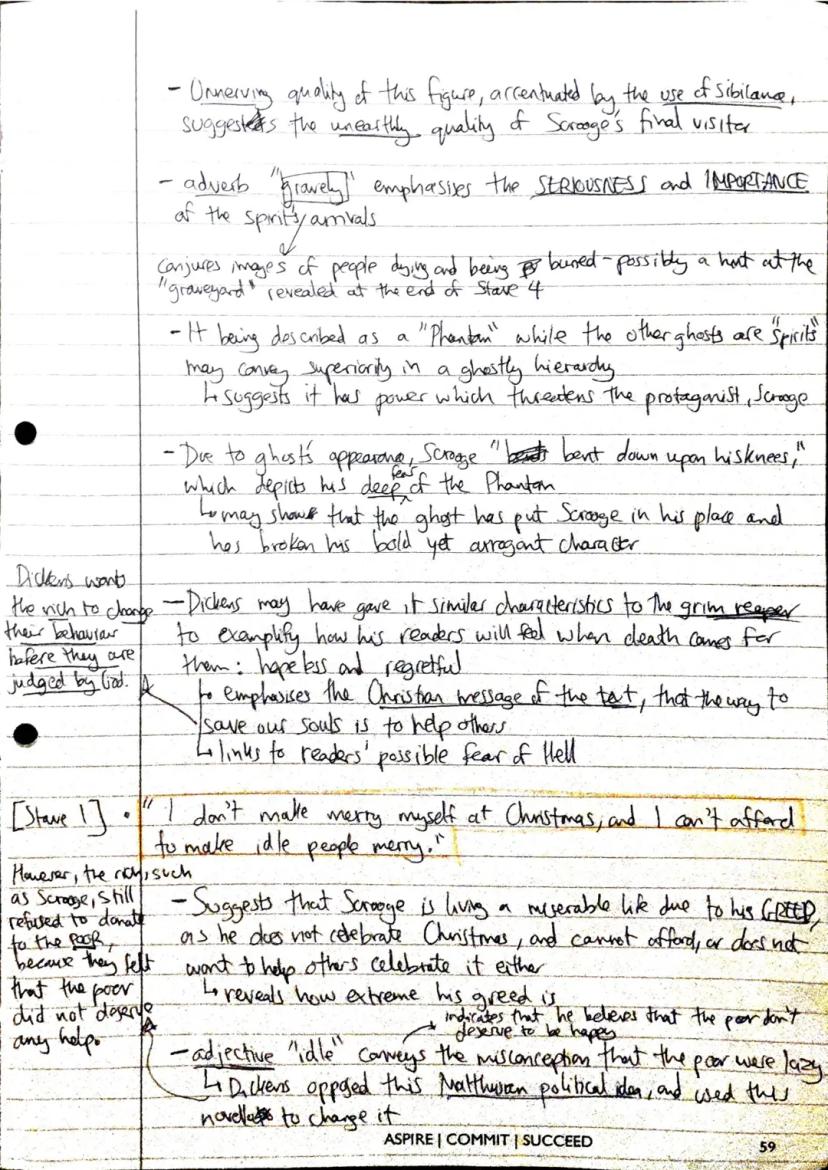 - Unnerving quality of this figure, accentuated by the use of sibilance,
suggests the unearthly quality of Scrooge's final visitor
- adverb "gravely" emphasises the SERIOUSNESS and IMPORTANCE
of the spirit's arrivals
conjures images of people dying and being buried - possibly a hint at the
"graveyard" revealed at the end of Stave 4
- It being described as a "Phantom" while the other ghosts are "spirits"
may convey superiority in a ghostly hierarchy
↳ suggests it has power which threatens the protagonist, Scrooge
- Due to ghost's appearance, Scrooge " bent down upon his knees,"
which depicts his deep fear of the Phantom
↳ may show that the ghost has put Scrooge in his place and
has broken his bold yet arrogant character
Dickens wants
the rich to change
their behaviour
before they are
judged by God.
- Dickens may have gave it similar characteristics to the grim reaper
to exemplify how his readers will feel when death comes for
them: hopeless and regretful
↳ emphasises the Christian message of the text, that the way to
save our souls is to help others
↳ links to readers' possible fear of Hell
[Stave 1] • "I don't make merry myself at Christmas, and I can't afford
to make idle people merry."
However, the rich, such
as Scrooge, still
refused to donate
to the poor,
because they felt
that the poor
did not deserve
any help.
- Suggests that Scrooge is living a miserable life due to his GREED,
as he does not celebrate Christmas, and cannot afford, or does not
want to help others celebrate it either
↳ reveals how extreme his greed is
indicates that he believes that the poor don't
deserve to be happy
- adjective "idle" conveys the misconception that the poor were lazy
↳ Dickens opposed this Malthusian political idea, and used this
novella to change it
ASPIRE | COMMIT | SUCCEED
59